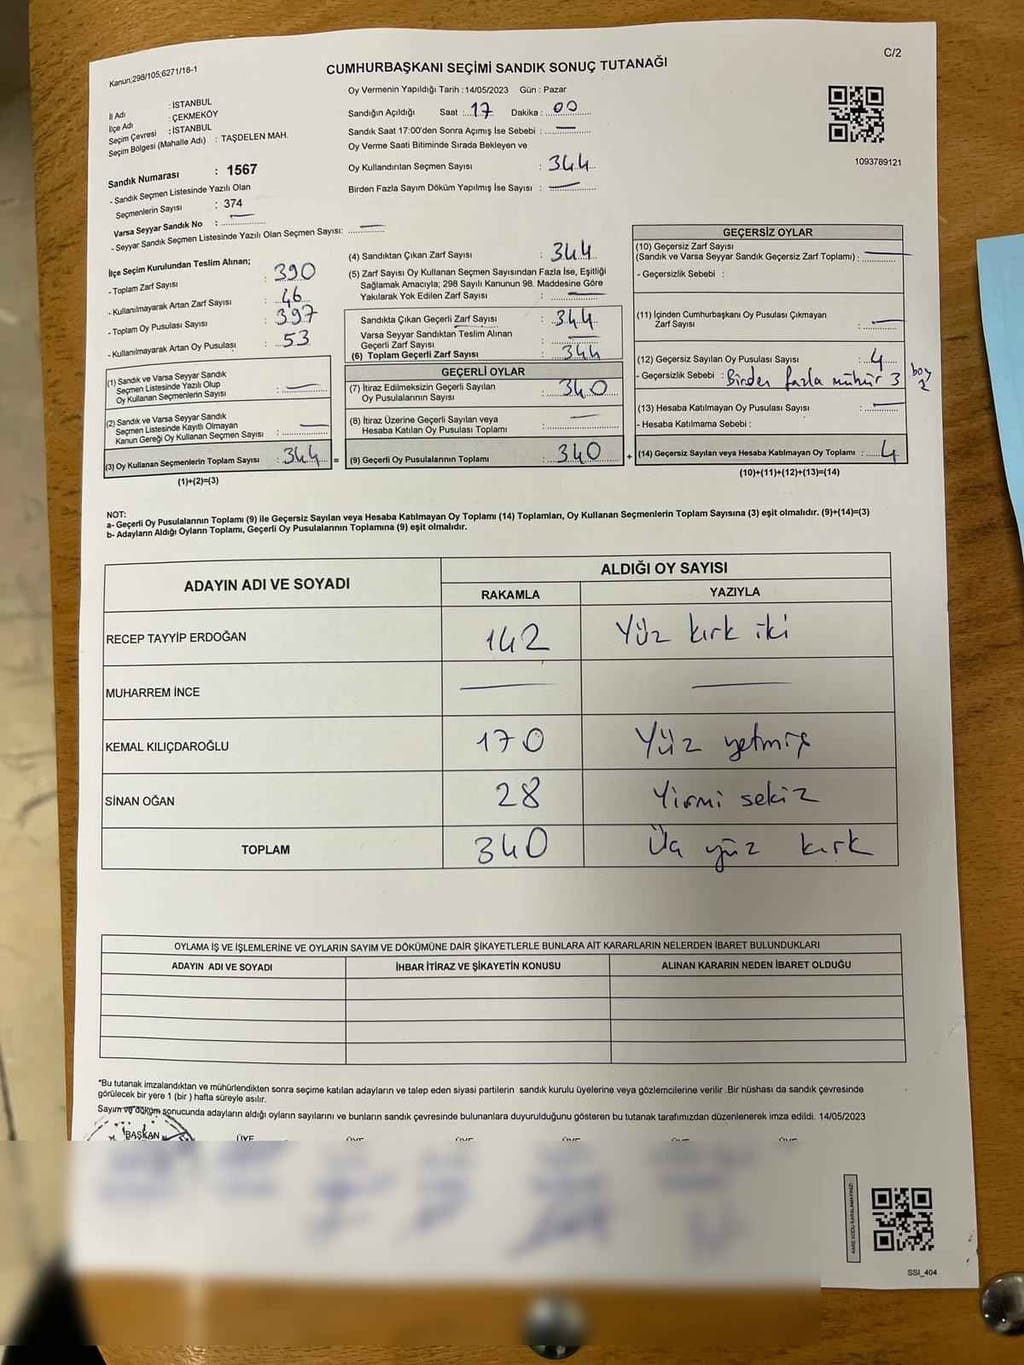 Kanun:298/105;6271/18-1
C/2
CUMHURBAŞKANI SEÇİMİ SANDIK SONUÇ TUTANAĞI
İl Adı : İSTANBUL
İlçe Adı : ÇEKMEKÖY
Seçim Çevresi : İSTANBUL
Seçim Bölgesi (Mahalle Adı) : TAŞDELEN MAH.
Sandık Numarası : 1567
- Sandık Seçmen Listesinde Yazılı Olan
Seçmenlerin Sayısı : 374
Varsa Seyyar Sandık No :
- Seyyar Sandık Seçmen Listesinde Yazılı Olan Seçmen Sayısı:
Oy Vermenin Yapıldığı Tarih :14/05/2023 Gün : Pazar
Sandığın Açıldığı Saat : 17 Dakika : 00
Sandık Saat 17:00'den Sonra Açımış İse Sebebi : —
Oy Verme Saati Bitiminde Sırada Bekleyen ve
Oy Kullandırılan Seçmen Sayısı : 344
Birden Fazla Sayım Döküm Yapılmış İse Sayısı : —
1093789121
İlçe Seçim Kurulundan Teslim Alınan;
- Toplam Zarf Sayısı : 390
- Kullanılmayarak Artan Zarf Sayısı : 46
- Toplam Oy Pusulası Sayısı : 397
- Kullanılmayarak Artan Oy Pusulası : 53
(1) Sandık ve Varsa Seyyar Sandık
Seçmen Listesinde Yazılı Olup
Oy Kullanan Seçmenlerin Sayısı : —
(2) Sandık ve Varsa Seyyar Sandık
Seçmen Listesinde Kayıtlı Olmayan
Kanun Gereği Oy Kullanan Seçmen Sayısı : —
(3) Oy Kullanan Seçmenlerin Toplam Sayısı : 344 =
(1)+(2)=(3)
(4) Sandıktan Çıkan Zarf Sayısı : 344
(5) Zarf Sayısı Oy Kullanan Seçmen Sayısından Fazla İse, Eşitliği
Sağlamak Amacıyla; 298 Sayılı Kanunun 98. Maddesine Göre
Yakılarak Yok Edilen Zarf Sayısı : —
Sandıkta Çıkan Geçerli Zarf Sayısı : 344
Varsa Seyyar Sandıktan Teslim Alınan
Geçerli Zarf Sayısı :
(6) Toplam Geçerli Zarf Sayısı : 344
GEÇERLİ OYLAR
(7) İtiraz Edilmeksizin Geçerli Sayılan
Oy Pusulalarının Sayısı : 340
(8) İtiraz Üzerine Geçerli Sayılan veya
Hesaba Katılan Oy Pusulası Toplamı : —
(9) Geçerli Oy Pusulalarının Toplamı : 340 +
GEÇERSİZ OYLAR
(10) Geçersiz Zarf Sayısı
(Sandık ve Varsa Seyyar Sandık Geçersiz Zarf Toplamı) : —
- Geçersizlik Sebebi :
(11) İçinden Cumhurbaşkanı Oy Pusulası Çıkmayan
Zarf Sayısı : —
(12) Geçersiz Sayılan Oy Pusulası Sayısı : 4
- Geçersizlik Sebebi : Birden fazla mühür 3 boş
(13) Hesaba Katılmayan Oy Pusulası Sayısı : —
- Hesaba Katılmama Sebebi :
(14) Geçersiz Sayılan veya Hesaba Katılmayan Oy Toplamı : 4
(10)+(11)+(12)+(13)=(14)
NOT:
a- Geçerli Oy Pusulalarının Toplamı (9) ile Geçersiz Sayılan veya Hesaba Katılmayan Oy Toplamı (14) Toplamları, Oy Kullanan Seçmenlerin Toplam Sayısına (3) eşit olmalıdır. (9)+(14)=(3)
b- Adayların Aldığı Oyların Toplamı, Geçerli Oy Pusulalarının Toplamına (9) eşit olmalıdır.
ADAYIN ADI VE SOYADI
ALDIĞI OY SAYISI
RAKAMLA YAZIYLA
RECEP TAYYİP ERDOĞAN 142 Yüz kırk iki
MUHARREM İNCE — —
KEMAL KILIÇDAROĞLU 170 Yüz yetmiş
SİNAN OĞAN 28 Yirmi sekiz
TOPLAM 340 Üç yüz kırk
OYLAMA İŞ VE İŞLEMLERİNE VE OYLARIN SAYIM VE DÖKÜMÜNE DAİR ŞİKAYETLERLE BUNLARA AİT KARARLARIN NELERDEN İBARET BULUNDUKLARI
ADAYIN ADI VE SOYADI İHBAR İTİRAZ VE ŞİKAYETİN KONUSU ALINAN KARARIN NEDEN İBARET OLDUĞU
*Bu tutanak imzalandıktan ve mühürlendikten sonra seçime katılan adayların ve talep eden siyasi partilerin sandık kurulu üyelerine veya gözlemcilerine verilir .Bir nüshası da sandık çevresinde
görülecek bir yere 1 (bir ) hafta süreyle asılır.
Sayım ve döküm sonucunda adayların aldığı oyların sayılarını ve bunların sandık çevresinde bulunanlara duyurulduğunu gösteren bu tutanak tarafımızdan düzenlenerek imza edildi. 14/05/2023
BAŞKAN ÜYE ÜYE ÜYE ÜYE ÜYE ÜYE
SSI_404